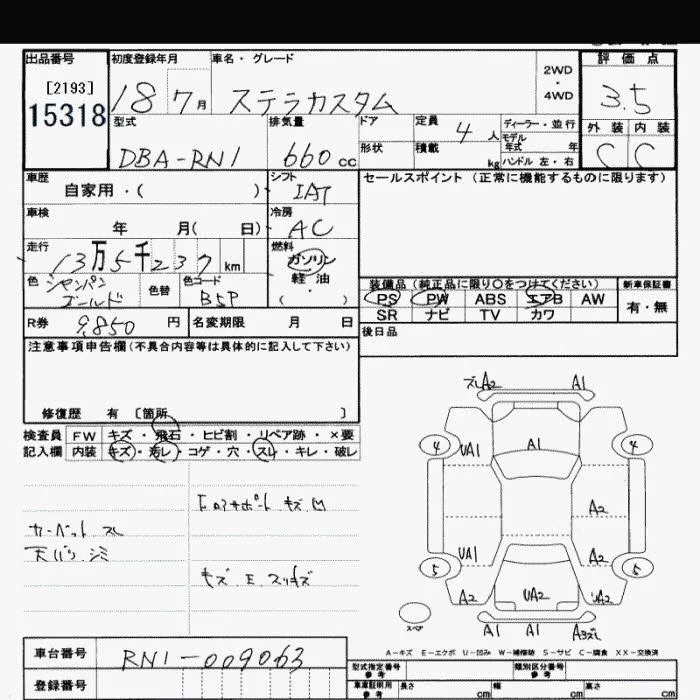 出品番号 初度登録年月 車名・グレード 評価点
[2193]
15318
18 7月 ステラカスタム 2WD・4WD 3.5
型式 排気量 ドア 定員 4人 ディーラー・並行 外装 内装
モデル年式 年
DBA-RN1 660cc 形状 積載 kg ハンドル 左・右 C C
車歴 シフト セールスポイント (正常に機能するものに限ります)
自家用・( ) IAT
車検 冷房
年 月( 日) AC
走行 燃料
13万5千237km ガソリン
色 シャンパンゴールド 色替 色コード B5P 軽油
・( )
装備品 (純正品に限り〇をつけてください) 新車保証書
PS PW ABS エアB AW 有・無
SR ナビ TV カワ
R券 9,850円 名変期限 月 日 後日品
注意事項申告欄(不具合内容等は具体的に記入して下さい)
修復歴 有 〔箇所 〕
検査員 FW キズ・飛石・ヒビ割・リペア跡・×要
記入欄 内装 キズ・汚レ・コゲ・穴・スレ・キレ・破レ
カーペット スレ
天バリ シミ
キズ E スリキズ
ズレA2 A1
4 UA1 A1 4
A2
UA1 A2
5 5
A2 UA2 UA2
スペア
A1 A1 A3ズレ
A-キズ E-エクボ U-凹み W-補修跡 S-サビ C-腐食 XX-交換済
車台番号 RN1-009063
登録番号
型式指定番号 参考 類別区分番号 参考
車庫証明用 参考 長さ cm 幅 cm 高さ cm